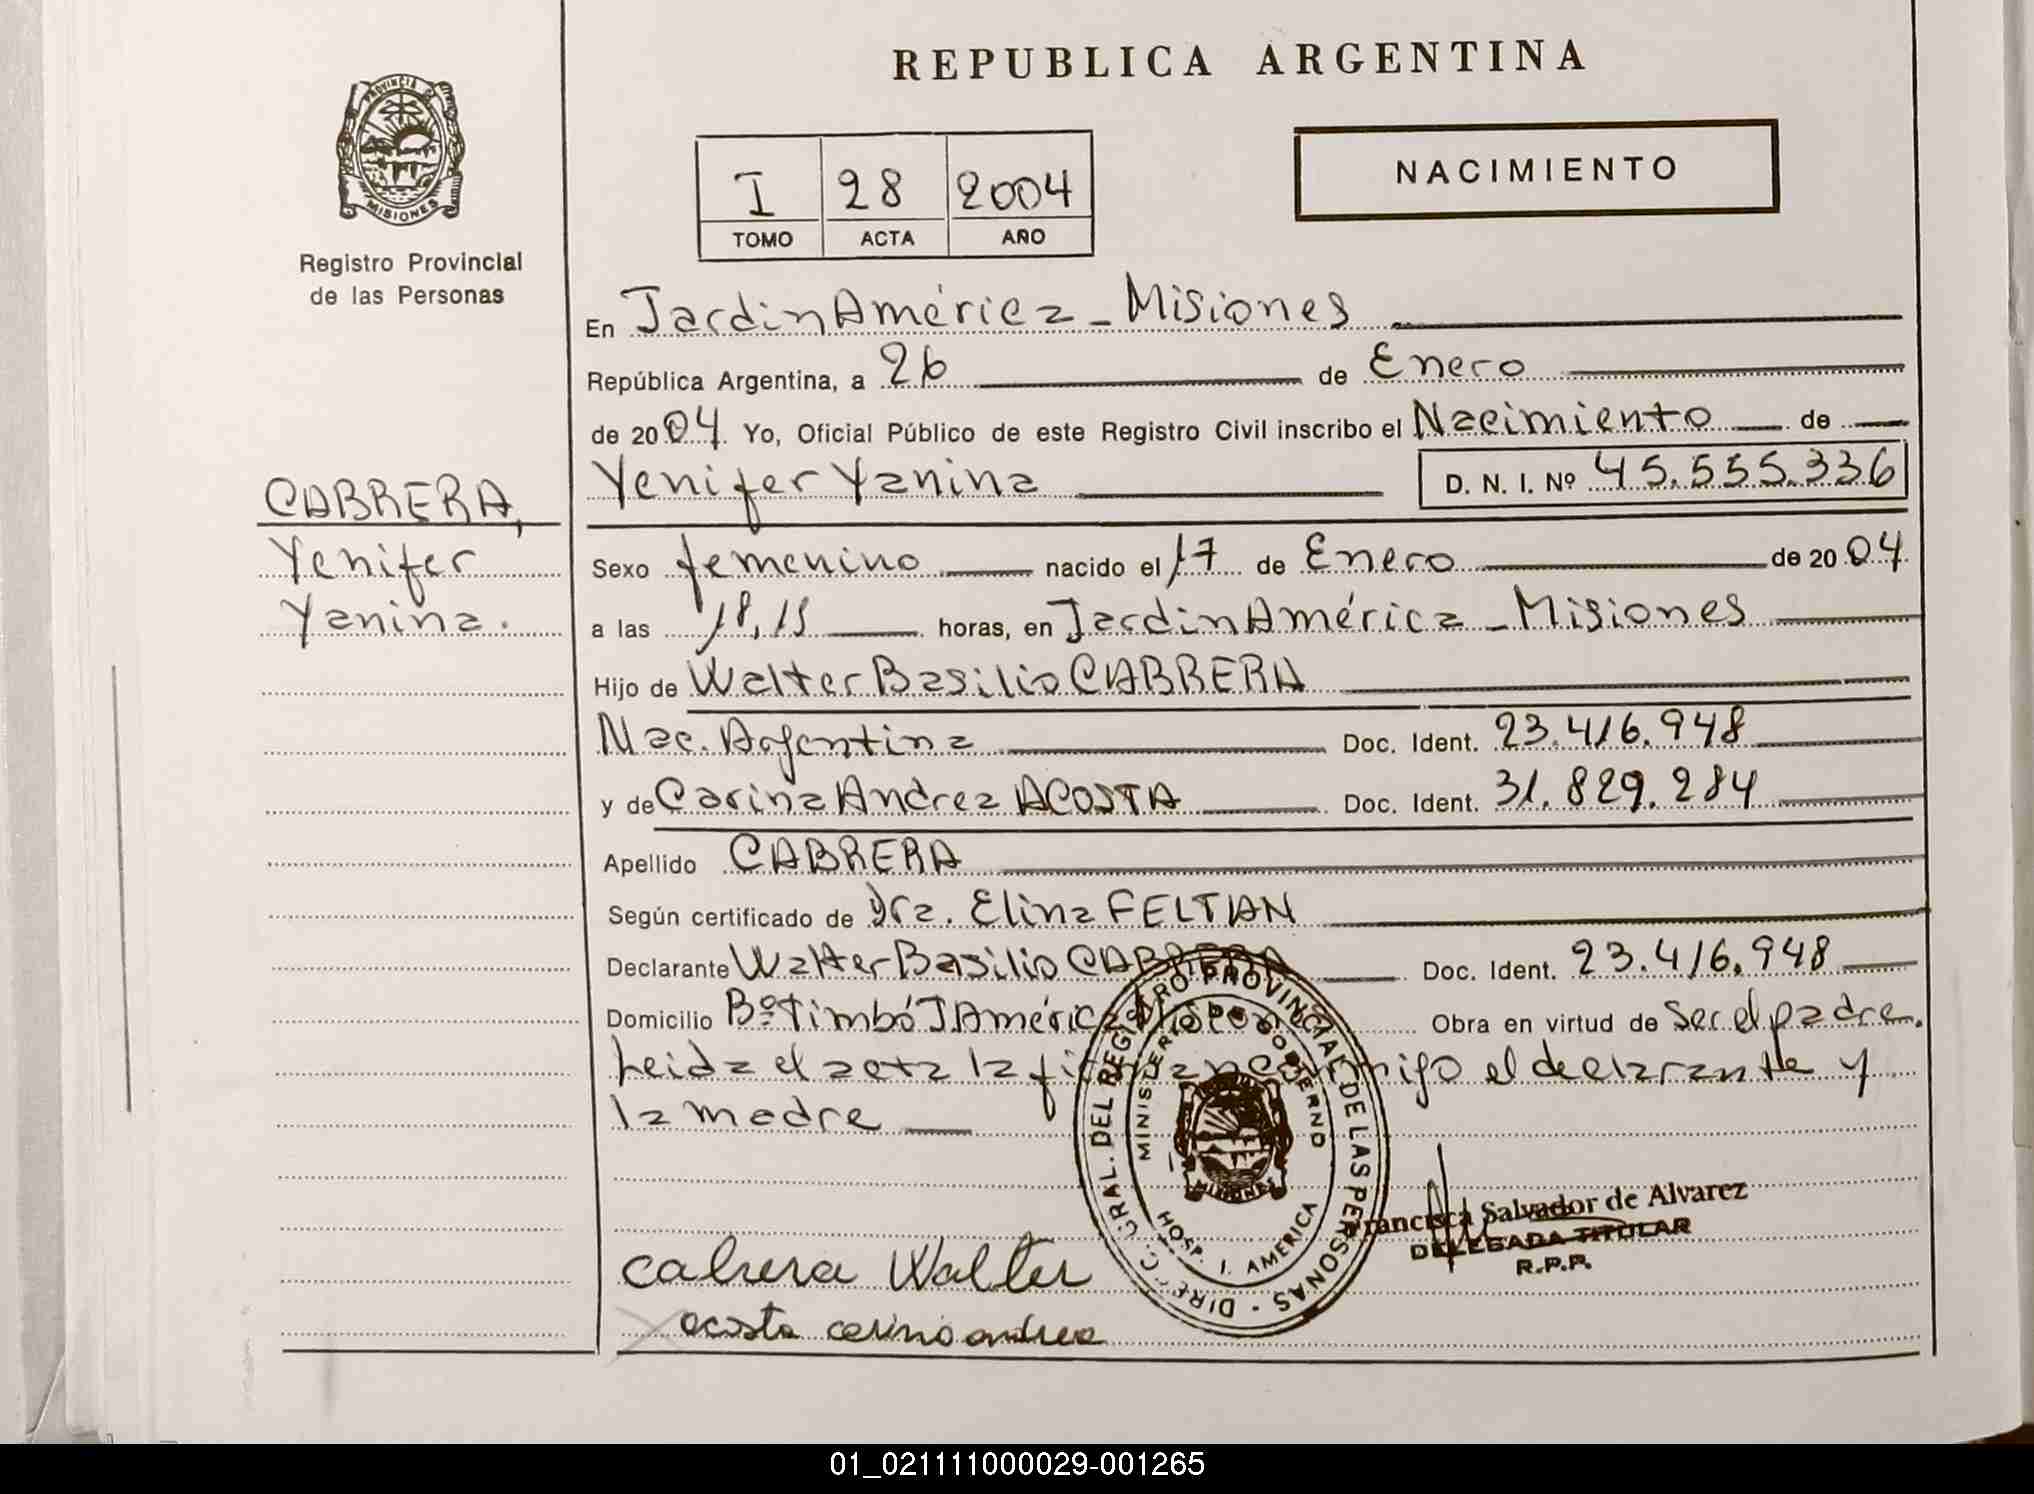 REPUBLICA ARGENTINA
PROVINCIA D
MISIONES
Registro Provincial
de las Personas
I 28 2004
TOMO ACTA AÑO
NACIMIENTO
En Jardin América - Misiones
República Argentina, a 26 de Enero
de 2004. Yo, Oficial Público de este Registro Civil inscribo el Nacimiento de
Yenifer Yanina D. N. I. Nº 45.555.336
CABRERA,
Yenifer
Yanina.
Sexo femenino nacido el 17 de Enero de 2004.
a las 18,15 horas, en Jardin América - Misiones
Hijo de Walter Basilio CABRERA
Nac. Argentina Doc. Ident. 23.416.948
y de Carina Andrea ACOSTA Doc. Ident. 31.829.284
Apellido CABRERA
Según certificado de Dra. Elina FELTAN
Declarante Walter Basilio CABRERA Doc. Ident. 23.416.948
Domicilio Bº Timbó J América Obra en virtud de ser el padre.
Leida el acta la conmigo el declarante y
la madre
DIREC. GRAL. DEL REGISTRO PROVINCIAL DE LAS PERSONAS -
MINISTERIO DE GOBIERNO
MISIONES
HOSP. J. AMERICA
Francisca Salvador de Alvarez
DELEGADA TITULAR
R.P.P.
Cabrera Walter
acosta carina andrea
01_021111000029-001265